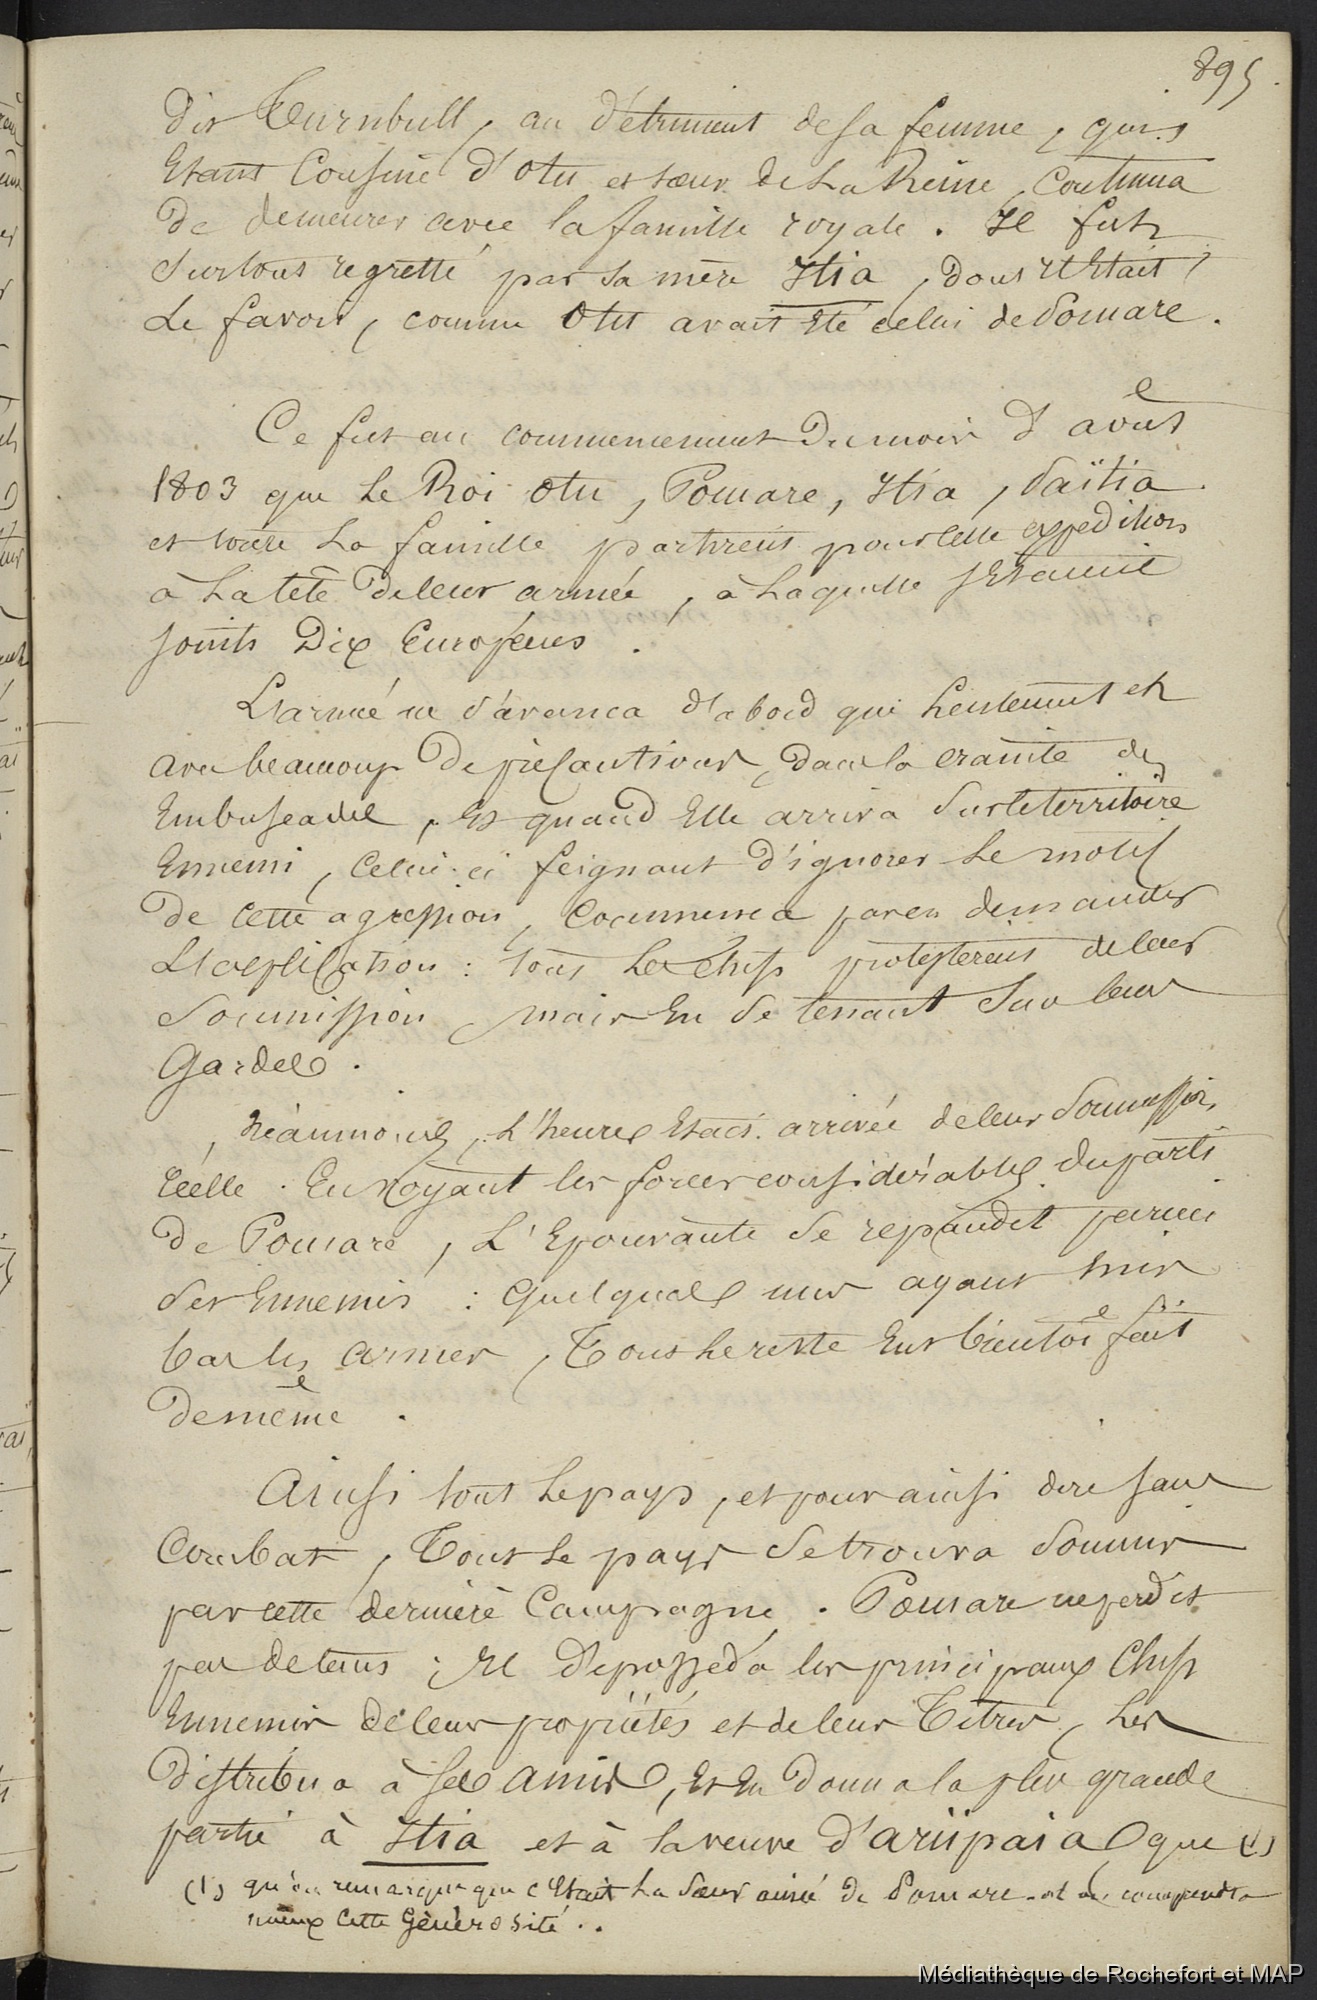 895
dit Turnbull, au détriment de sa femme, qui
étant Cousine d'Otu et sœur de la Reine, Continua
de demeurer avec la famille royale. Il fut
surtout regretté par sa mère Itia, dont il était
le favori, comme Otu avait été celui de Pomare.
Ce fut au commencement du mois d'août
1803 que le Roi Otu, Pomare, Itia, Païtia
et toute la famille partirent pour cette expédition
à la tête de leur armée, à laquelle s'étaient
joints Dix Européens.
L'armée ne s'avança d'abord que lentement et
avec beaucoup de précautions, dans la crainte des
Embuscades, et quand Elle arriva sur le territoire
Ennemi, Celui-ci feignant d'ignorer le motif
de cette agression, Commença par en demander
L'explication : tous les chefs protestèrent de leur
Soumission mais En se tenant sur leurs
Gardes.
Néanmoins, L'heure était arrivée de leur soumission
réelle. En voyant les forces considérables du parti
de Pomare, L'Epouvante se répandit parmi
ses Ennemis : Quelques uns ayant mis
bas les armes, Tous le reste Eut bientôt fait
de même.
Ainsi tout le pays, et pour ainsi dire sans
Combat, Tout le pays se trouva soumis
par cette dernière Campagne. Pomare ne perdit
pas de tems : Il déposséda les principaux Chefs
Ennemis de leurs propriétés et de leurs Titres, les
distribua à ses amis, et En donna la plus grande
partie à Itia et à la veuve d'ariipaia que (1)
(1) qu'on remarque que c'était la sœur ainée de Pomare et on comprendra
mieux cette Générosité..
Médiathèque de Rochefort et MAP